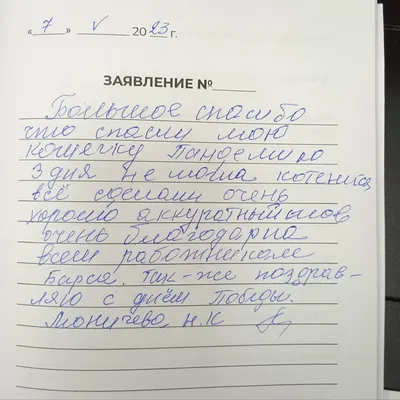 «7» V 2023 г.
ЗАЯВЛЕНИЕ №
Большое спасибо
что спасли мою
кошечку
3 дня не могла котенится
всё сделали очень
хорошо аккуратный шов
очень благодарна
всем работникам
Барса. Так-же поздрав-
ляю с днём Победы.
Моничева Н.К